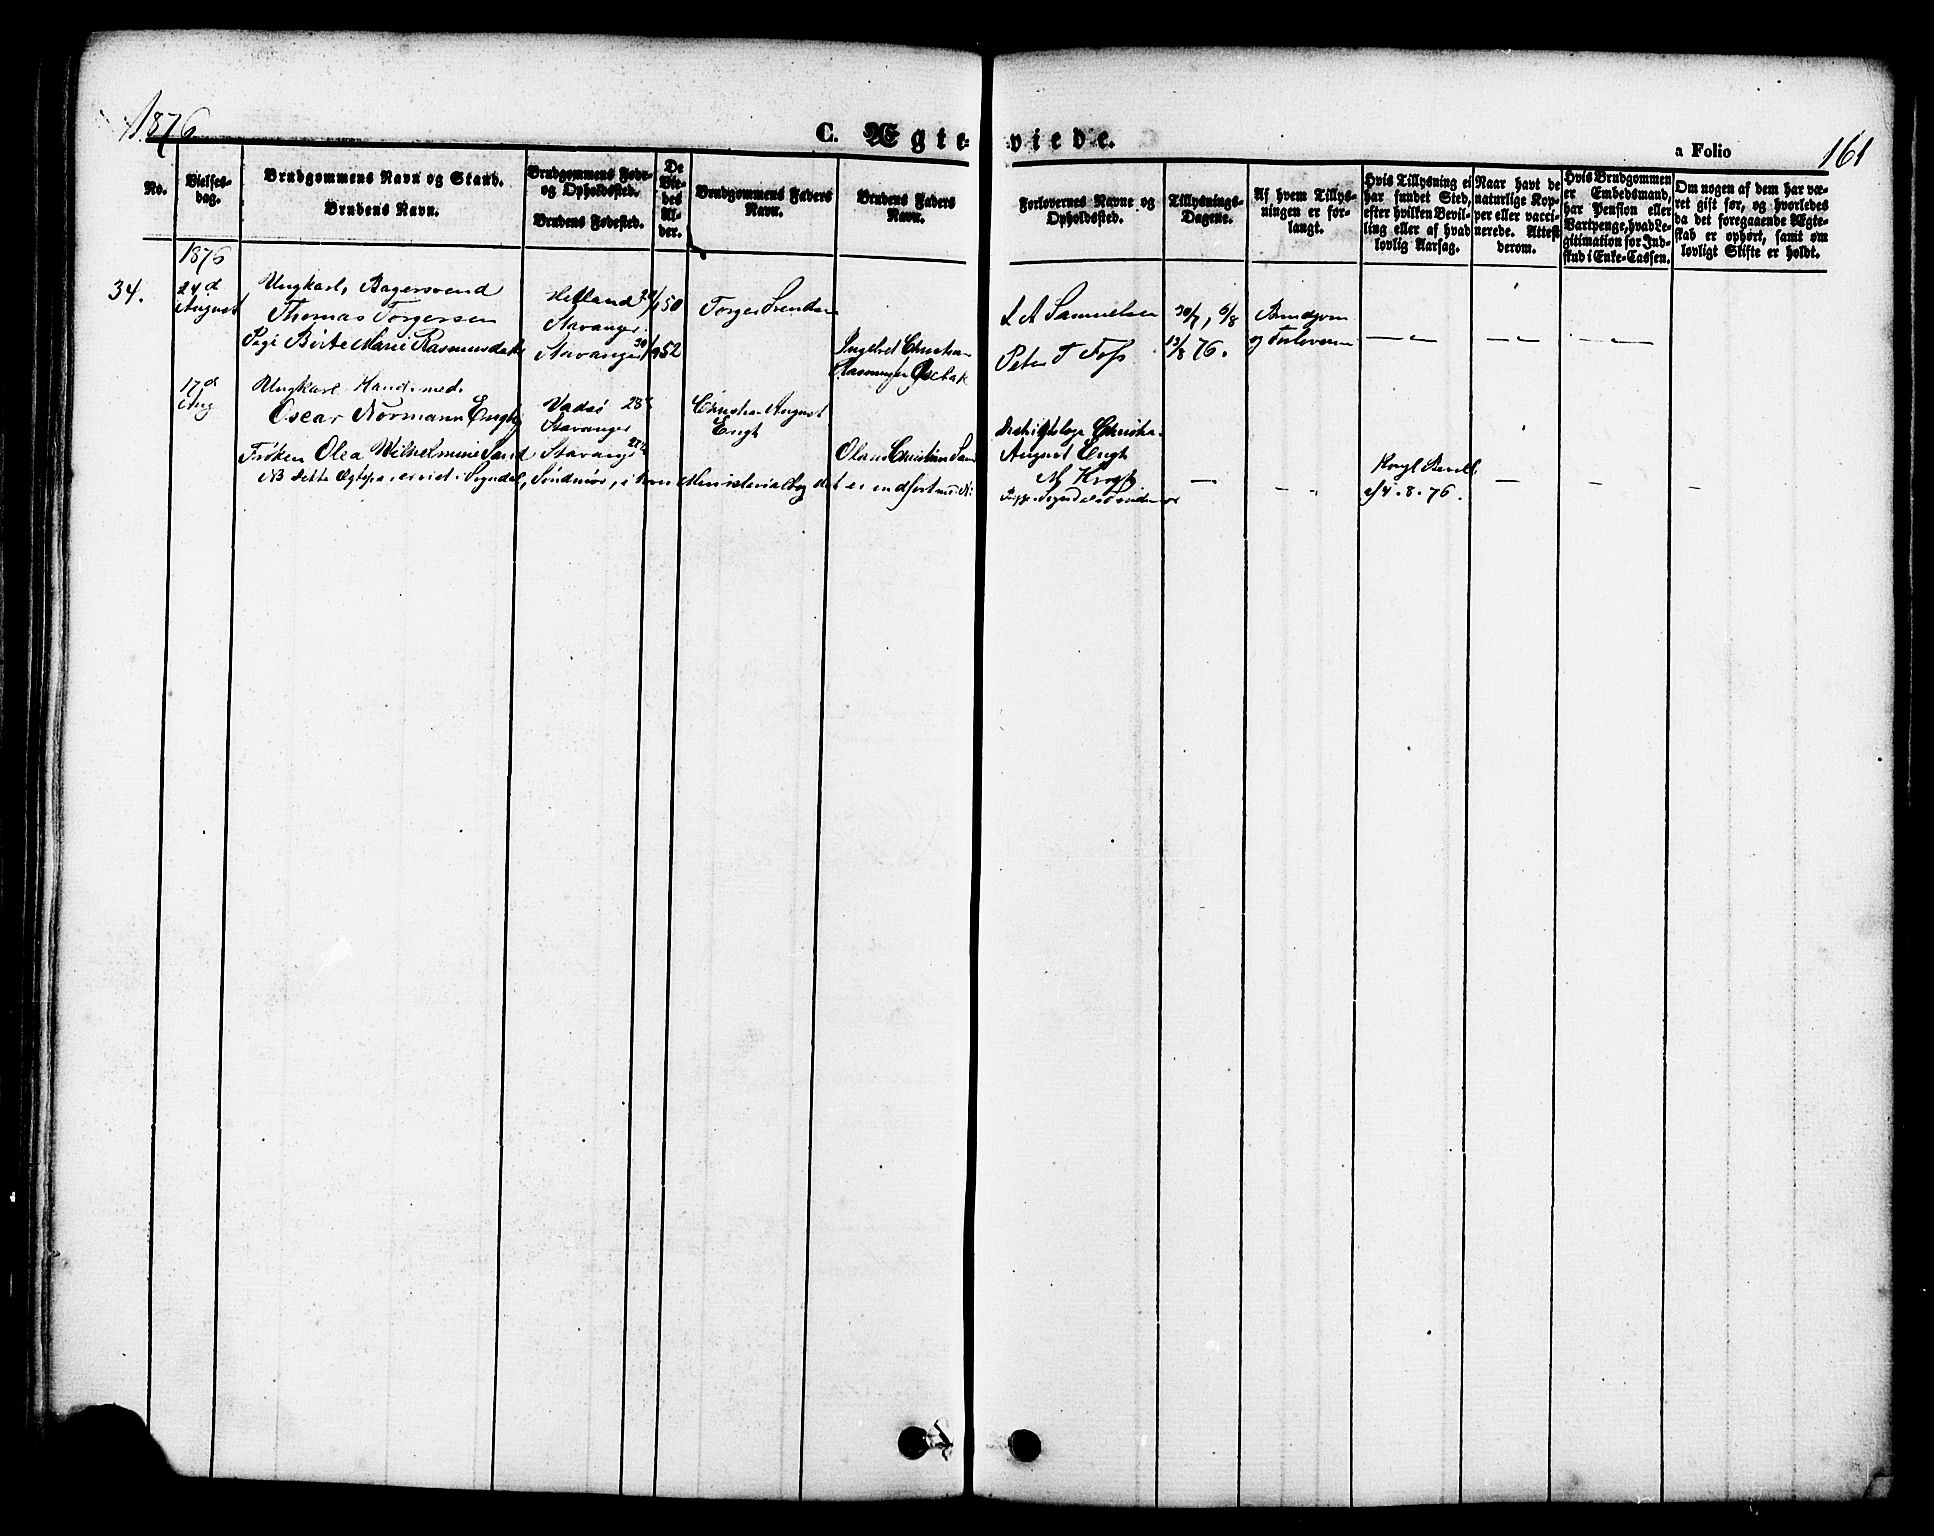 1876
C. Ægte-
viede.
a Folio
161
No.
Vielses-
dag.
Brudgommens Navn og Stand.
Brudens Navn.
Brudgommens Føde-
og Opholdssted.
Brudens Fødested.
De
Vie-
des
Al-
der.
Brudgommens Faders
Navn.
Brudens Faders
Navn.
Forlovernes Navne og
Opholdssted.
Tillysnings-
Dagene.
Af hvem Tillys-
ningen er for-
langt.
Hvis Tillysning ei
har fundet Sted,
efter hvilken Bevil-
ling eller af hvad
lovlig Aarsag.
Naar havt de
naturlige Kop-
per eller vacci-
nerede. Attest
derom.
Hvis Brudgommen
er Embedsmand,
har Pension eller
Vartpenge, hvad Le-
gitimation for Ind-
skud i Enke-Cassen.
Om nogen af dem har væ-
ret gift før, og hvorledes
da det foregaaende Ægte-
skab er ophørt, samt om
lovligt Skifte er holdt.
1876
34.
24d
August
Ungkarl, Bagersvend
Thomas Torgersen
Pige Birte Marie Rasmusdatter
Hetland
Stavanger
Stavanger
50
52
Torger Svendsen
Ingebret Christian
Rasmussen
L A Samuelsen
Peter T Foss
30/7, 6/8
13/8 76.
Brudgom
og Forlovere
17d
Aug
Ungkarl Hand.
Oscar Normann Engh
Frøken Olea Wilhelmine Sand
Vadsø 28
Stavanger
Stavanger
Christian August
Engh
Olaus Christian Sand
Christian
August Engh
M Krogh
Kngl Bevill.
af 4.8.76.
NB dette Ægtepar er viet i Sogndal, i hvis Ministerialbog det er indført